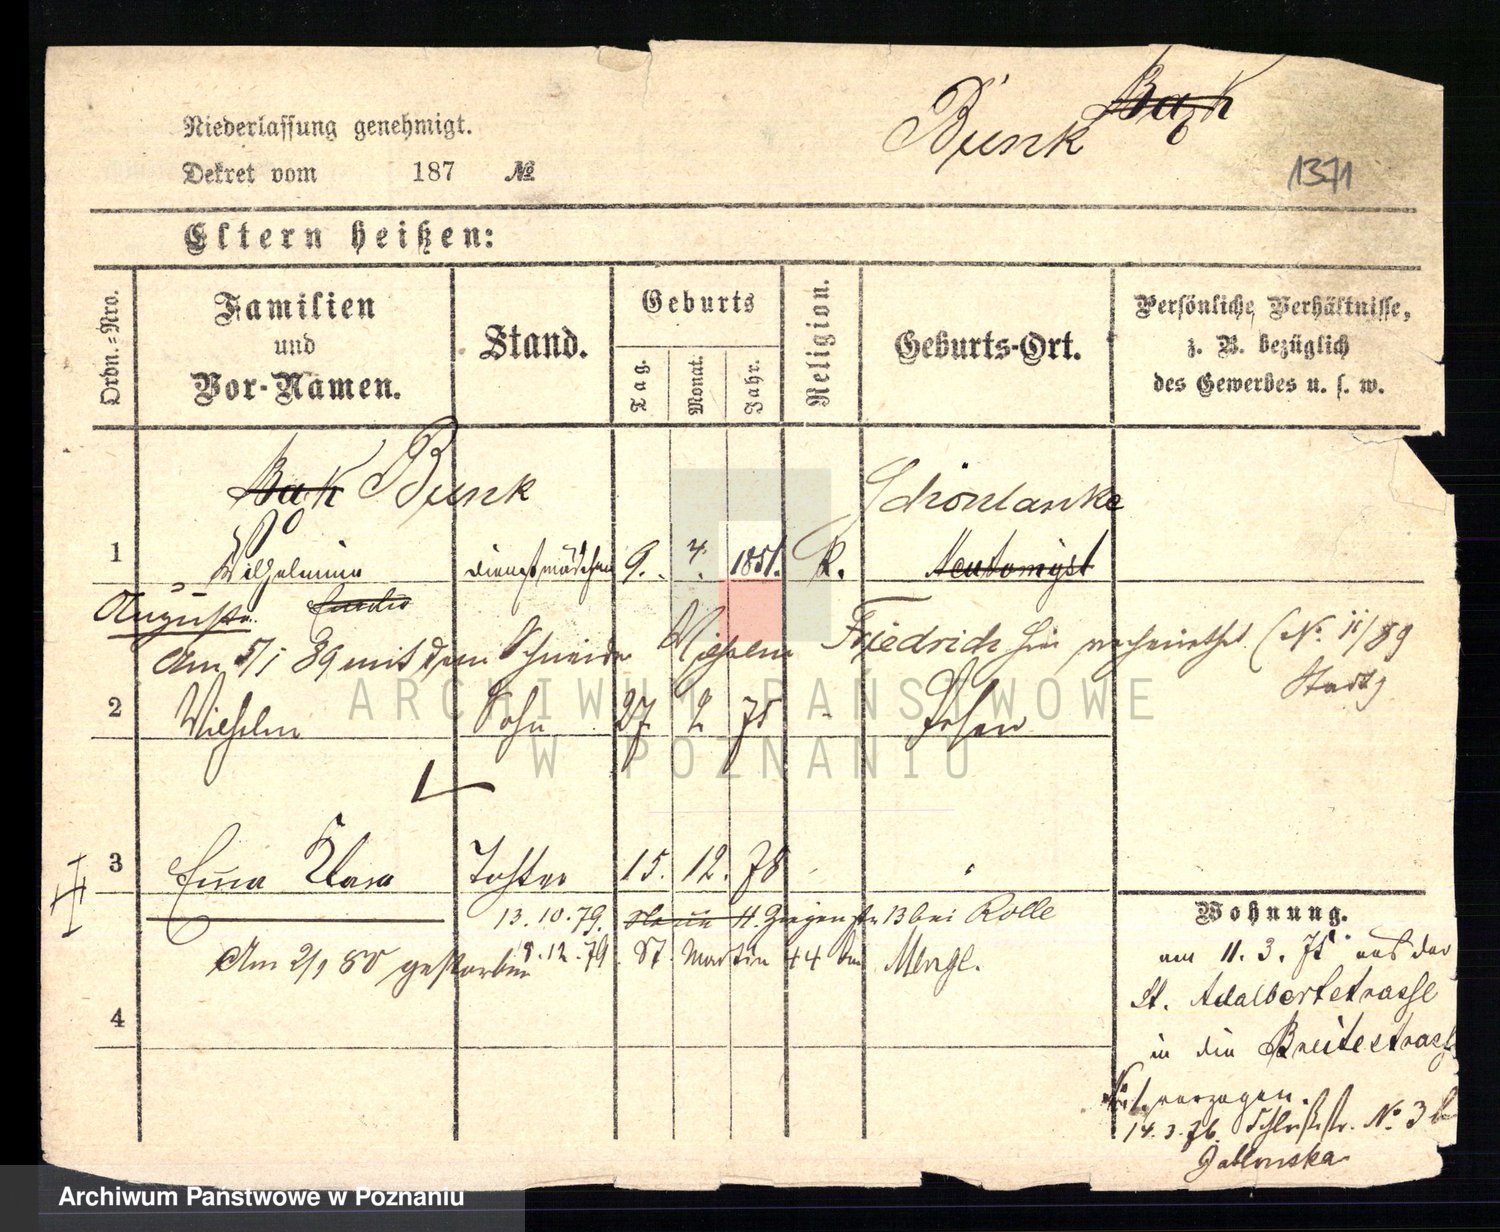 Niederlassung genehmigt.
Dekret vom 187 №
Bunk Bak
1371
Eltern heißen:
Ordn.=Nro.
Familien
und
Vor-Namen.
Stand.
Geburts
Tag.
Monat.
Jahr.
Religion.
Geburts-Ort.
Persönliche Verhältnisse,
z. B. bezüglich
des Gewerbes u. s. w.
Bak Bunk
Schönlanke
1 Wilhelmine Dienstmädchen 9. 4. 1851. K. Neutomysl
Auguste
Am 5/1 89 mit dem Schneider Wilhelm Friedrich hier verheirathet (No. 11/89
2 Wilhelm Sohn 27 2 75 - Posen
3 Klara Tochter 15. 12. 78
13.10.79. 13 bei Rolle
Am 2/1 80 gestorben
8.12.79. St. Martin 44 bei
4
Wohnung.
am 11. 3. 75 aus der
St. Adalbertstrasse
in die Breitestrasse
verzogen.
14.3.76. No. 3 b
Jablonska
ARCHIWUM PAŃSTWOWE
W POZNANIU
Archiwum Państwowe w Poznaniu